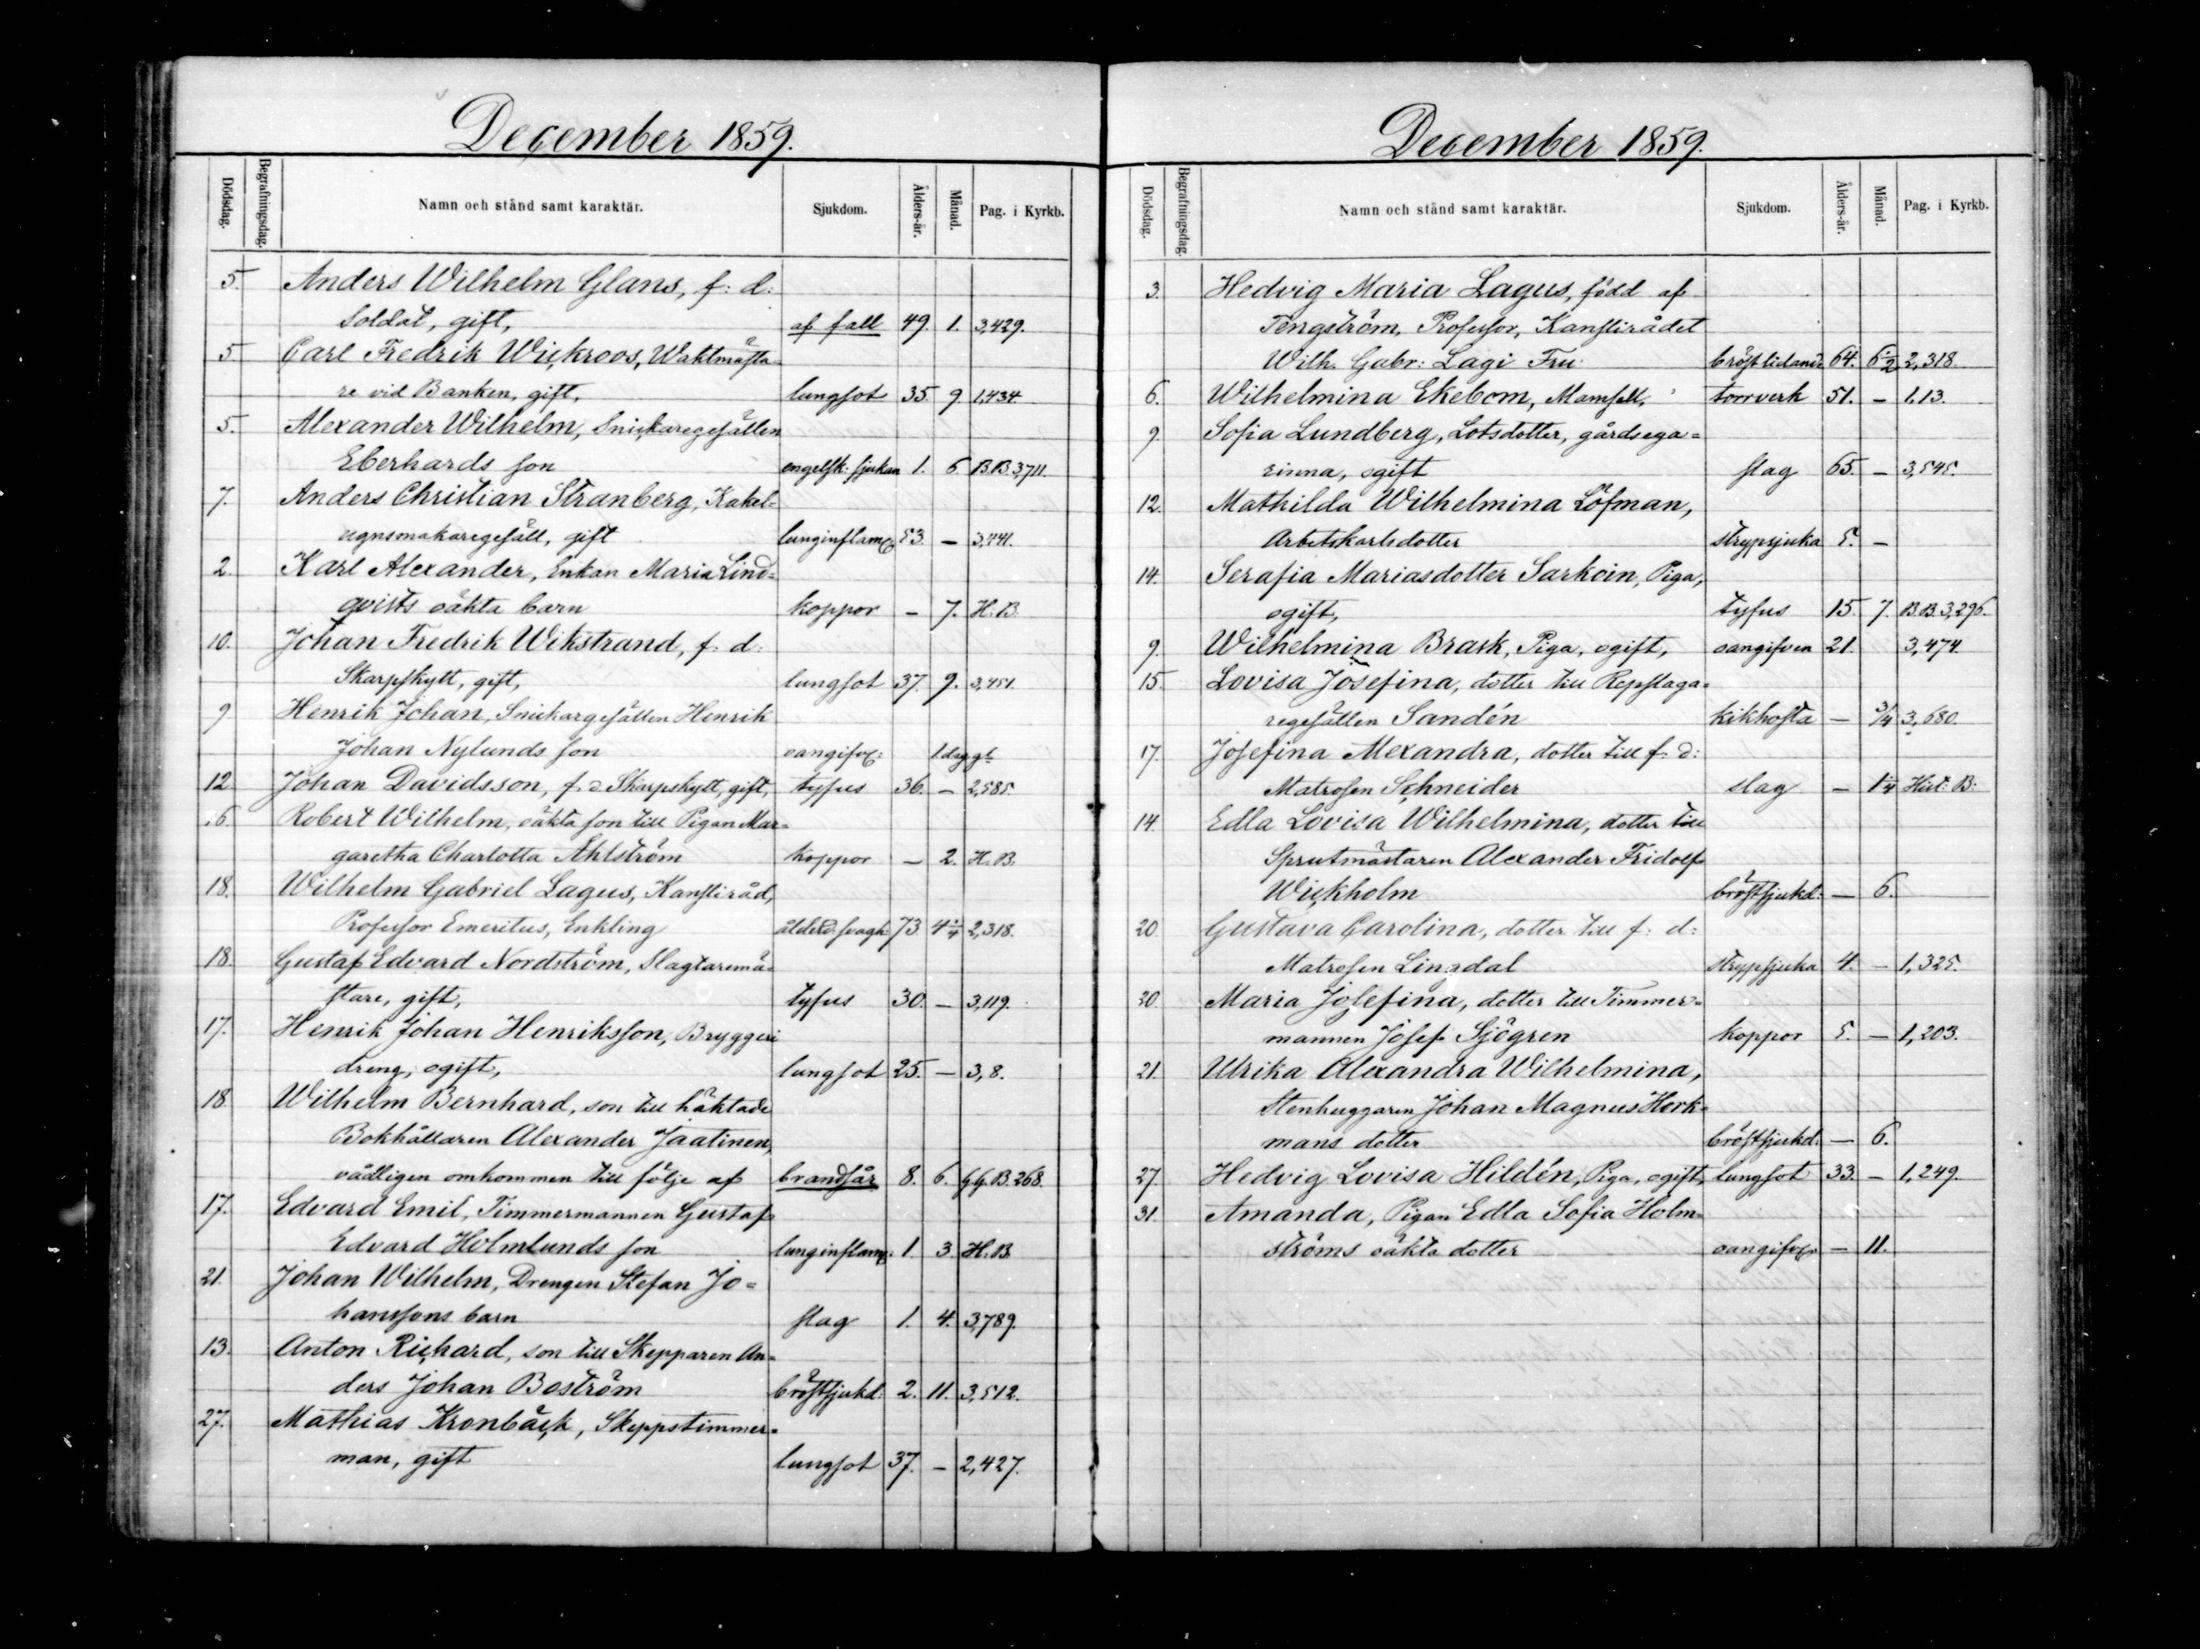 December 1859.
Dödsdag. Begrafningsdag. Namn och stånd samt karaktär. Sjukdom. Ålders-år. Månad. Pag. i Kyrkb.
5. Anders Wilhelm Glans, f: d:
Soldat, gift, af fall 49. 1. 3,429.
5 Carl Fredrik Wickroos, Waktmästa-
re vid Banken, gift, lungsot 35 9 1,434.
5. Alexander Wilhelm, Snickaregesällen
Eberhards son engelsk: sjukan 1. 6 B.B. 3,711.
7. Anders Christian Stranberg, Kakel-
ugnsmakaregesäll, gift lunginflam: 53 — 3,441.
2. Karl Alexander, Enkan Maria Lind-
qvists oäkta barn koppor — 7. H. B.
10. Johan Fredrik Wikstrand, f: d:
Skarpskytt, gift, lungsot 37. 9. 3,451.
9 Henrik Johan, Snickargesällen Henrik
Johan Nylunds son oangifv: 1 dag gl.
12. Johan Davidsson, f. d Skarpskytt, gift, tyfus 36. — 2,585.
16. Robert Wilhelm, oäkta son till Pigan Mar-
garetha Charlotta Ahlström koppor — 2. H. B.
18. Wilhelm Gabriel Lagus, Kansliråd,
Professor Emeritus, Enkling ålderd. svagh: 73 4 1/4 2,318.
18. Gustaf Edvard Nordström, Slagtaremä-
stare, gift, tyfus 30. — 3,119.
17. Henrik Johan Henriksson, Bryggeri
dreng, ogift, lungsot 25. — 3,8.
18 Wilhelm Bernhard, son till häktade
Bokhållaren Alexander Jaatinen,
vådligen omkommen till följe af brandsår 8. 6. G.G.B. 268.
17. Edvard Emil, Timmermannen Gustaf
Edvard Holmlunds son lunginflam: 1. 3. H. B
21. Johan Wilhelm, Drengen Stefan Jo-
hanssons barn slag 1. 4. 3,789.
13. Anton Richard, son till Skepparen An-
ders Johan Boström bröstsjukd: 2. 11. 3,512.
27. Mathias Kronbäck, Skeppstimmer-
man, gift lungsot 37. — 2,427.
December 1859.
Dödsdag. Begrafningsdag. Namn och stånd samt karaktär. Sjukdom. Ålders-år. Månad. Pag. i Kyrkb.
3. Hedvig Maria Lagus, född af
Tengström, Professor, Kanslirådet
Wilh. Gabr: Lagi Fru bröstlidand. 64. 6 1/2 2,318.
6. Wilhelmina Ekebom, Mamsell, torrverk 51. — 1,13.
9 Sofia Lundberg, Lotsdotter, gårdsega-
rinna, ogift slag 65. — 3,545.
12. Mathilda Wilhelmina Löfman,
Arbetskarlsdotter strypsjuka 5. —
14. Serafia Mariasdotter Sarkoin, Piga,
ogift, tyfus 15. 7. B.B. 3,296.
9. Wilhelmina Brask, Piga, ogift, oangifven 21. 3,474.
15. Lovisa Josefina, dotter till Repslaga-
regesällen Sandén kikhosta — 3/4 3,680.
17. Josefina Alexandra, dotter till f: d:
Matrosen Schneider slag — 1 1/4 Hist: B:
14. Edla Lovisa Wilhelmina, dotter till
Sprutmästaren Alexander Fridolf
Wickholm bröstsjukd: — 6.
20 Gustava Carolina, dotter till f: d:
Matrosen Lingdal strypsjuka 4. — 1,325.
20. Maria Josefina, dotter till Timmer-
mannen Josef Sjögren koppor 5. — 1,203.
21. Ulrika Alexandra Wilhelmina,
Stenhuggaren Johan Magnus Hork-
mans dotter bröstsjukd: — 6.
27. Hedvig Lovisa Hildén, Piga, ogift, lungsot 33. — 1,249.
31. Amanda, Pigan Edla Sofia Holm-
ströms oäkta dotter oangifv: — 11.